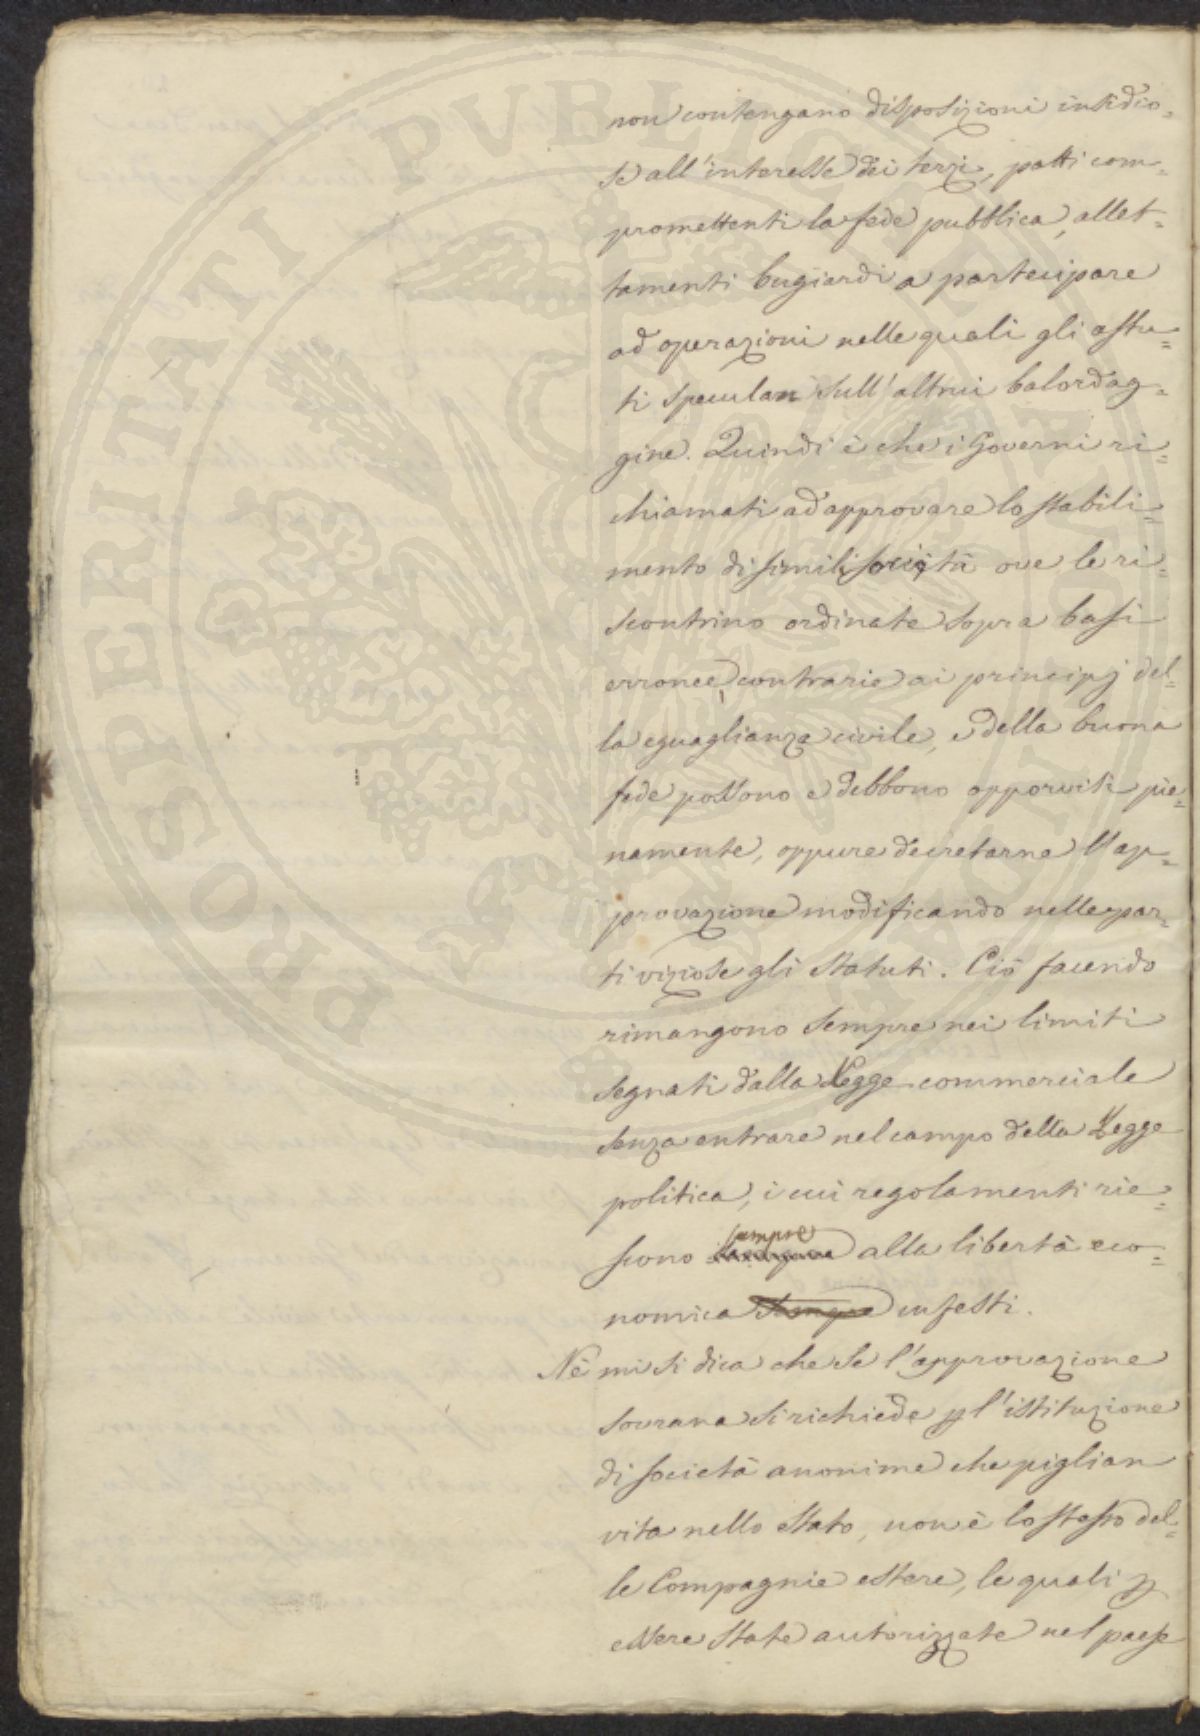 non contengano disposizioni insidio=
se all'interesse dei terzi, patti com=
promettenti la fede pubblica, allet=
tamenti bugiardi a partecipare
ad operazioni nelle quali gli astu=
ti speculan sull'altrui balordag=
gine. Quindi è che i Governi ri=
chiamati ad approvare lo stabili=
mento di simili società ove le ri=
scontrino ordinate sopra basi
erronee, contrarie ai principj del=
la eguaglianza civile, e della buona
fede possono e debbono opporvisi pie=
namente, oppure decretarne l'ap=
provazione modificando nelle par=
ti viziose gli statuti. Ciò facendo
rimangono sempre nei limiti
segnati dalla Legge commerciale
senza entrare nel campo della Legge
politica, i cui regolamenti rie=
scono sempre alla libertà eco=
nomica sempre infesti.
Nè mi si dica che se l'approvazione
sovrana si richiede p l'istituzione
di società anonime che piglian
vita nello Stato, non è lo stesso del=
le Compagnie estere, le quali p
essere state autorizzate nel paese
PROSPERITATI PVBLICAE